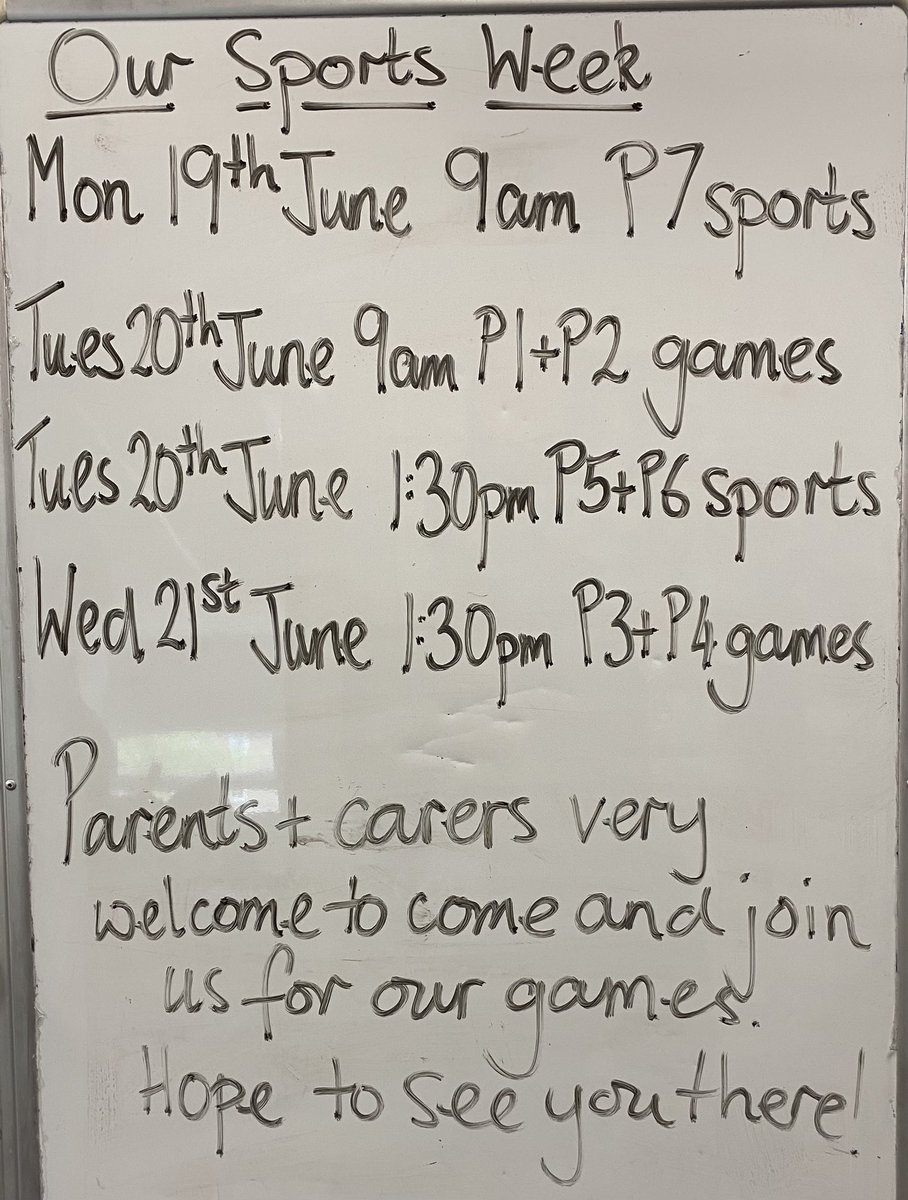 Our Sports Week
Mon 19th June 9am P7 sports
Tues 20th June 9am P1+P2 games
Tues 20th June 1:30pm P5+P6 sports
Wed 21st June 1:30pm P3+P4 games
Parents + carers very
welcome to come and join
us for our games.
Hope to see you there!